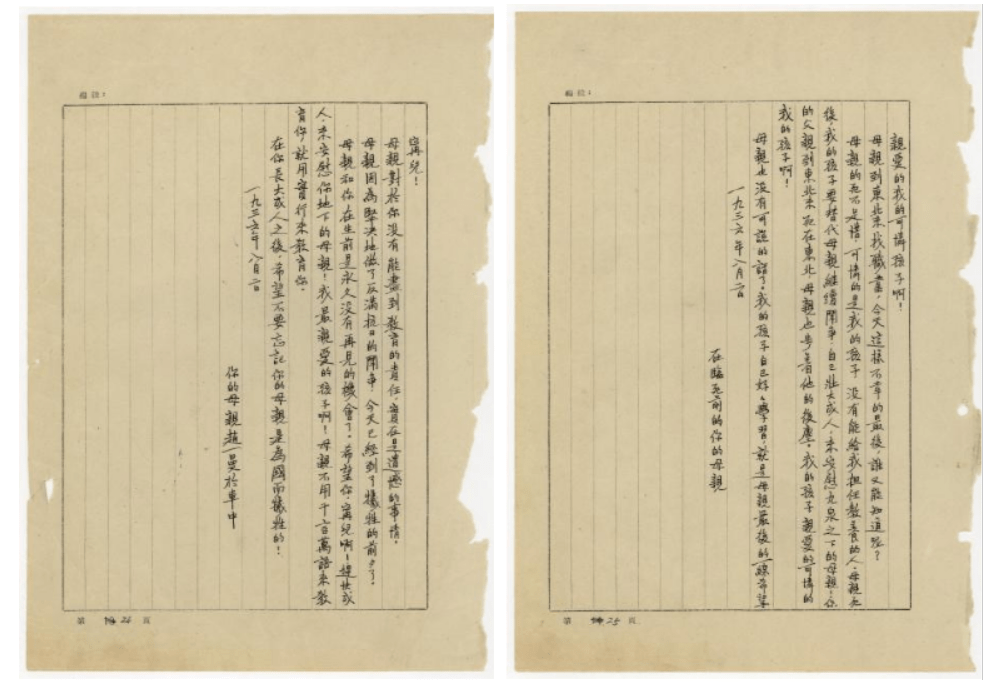 編號：
寗兒！
母親對於你沒有能盡到教育的責任，實在是遺憾的事情。
母親因為堅決地做了反滿抗日的鬥争，今天已經到了犧牲的前夕了。
母親和你在生前是永久沒有再見的機會了。希望你，寗兒啊！趕快成
人，来安慰你地下的母親！我最親愛的孩子啊！母親不用千言萬語来教
育你，就用實行来教育你。
在你長大成人之後，希望不要忘記你的母親是為國而犧牲的！
一九三六年八月二日
你的母親趙一曼於車中
第 24 頁
編號：
親愛的我的可憐孩子啊！
母親到東北来找職業，今天這樣不幸的最後，誰又能知道呢？
母親的死不足惜，可憐的是我的孩子，沒有能給我担任教養的人。母親死
後，我的孩子要替代母親繼續鬥争，自己壯大成人，来安慰九泉之下的母親！你
的父親到東北来死在東北，母親也步着他的後塵。我的孩子，親愛的可憐的
我的孩子啊！
母親也沒有可說的話了。我的孩子自己好々學習，就是母親最後的一線希望
一九三六年八月二日
在臨死前的你的母親
第 25 頁